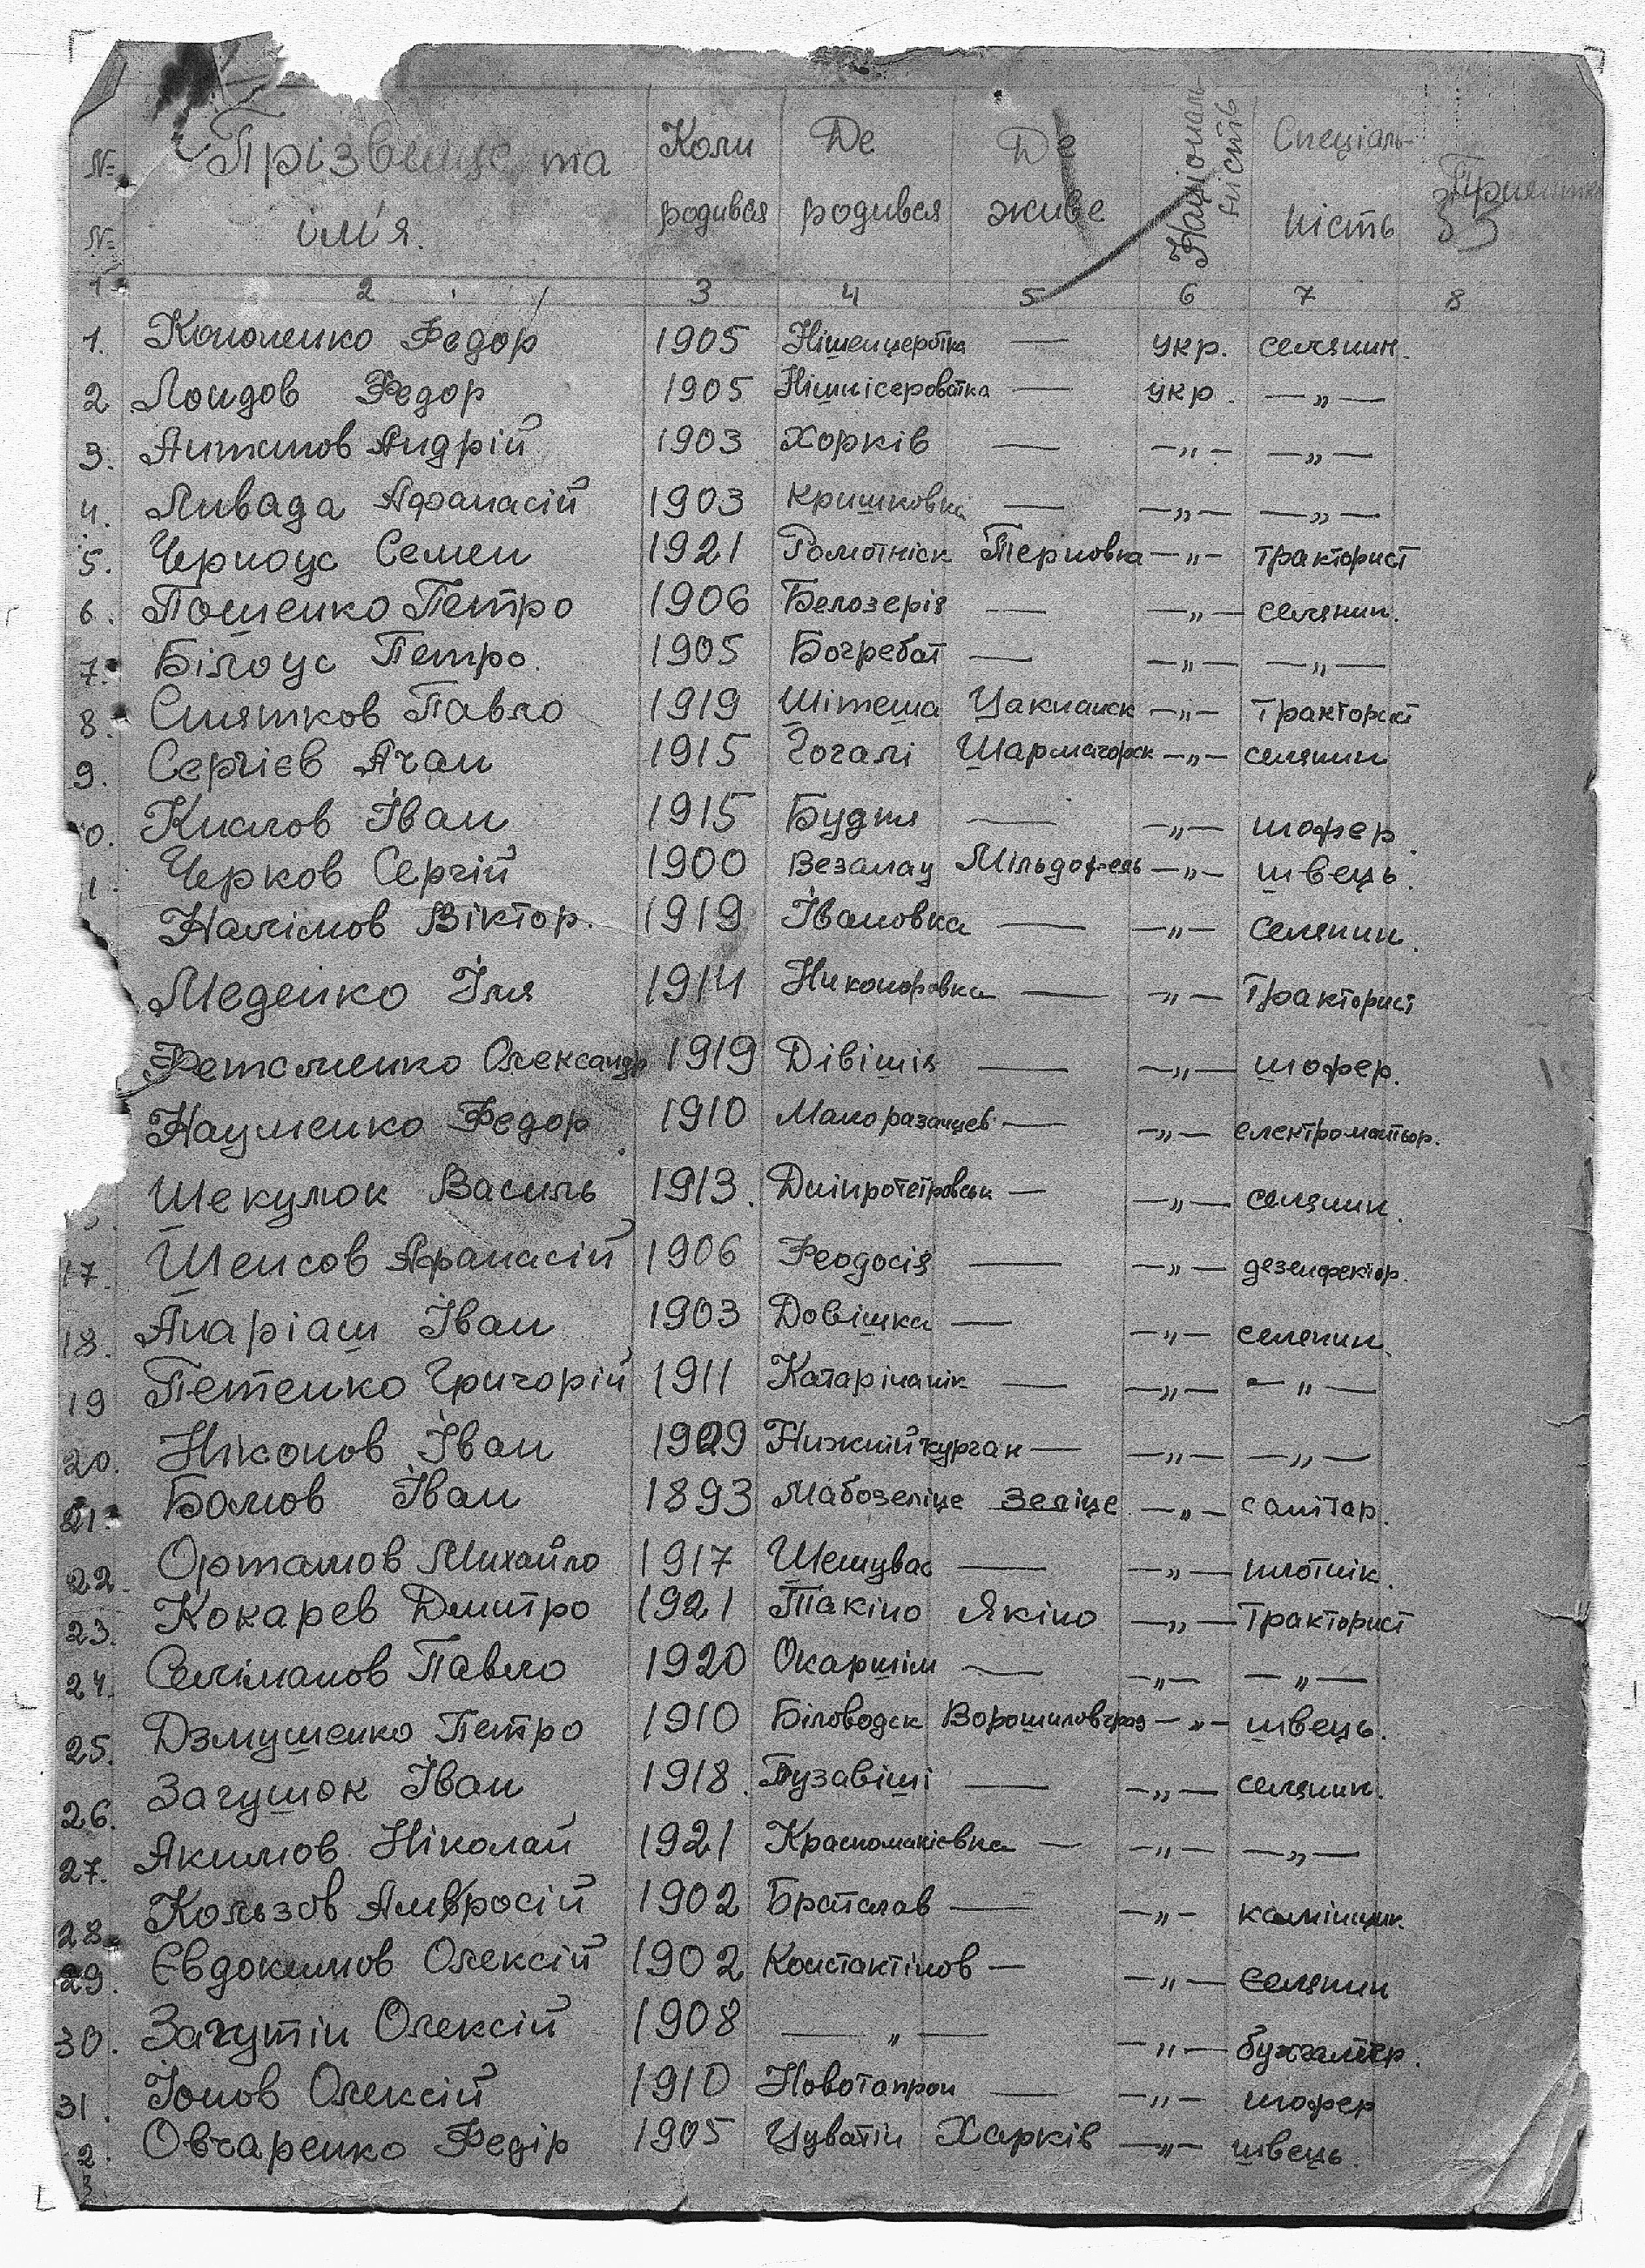 № Прізвище та Коли Де Де Національ- Спеціаль- Примітка
№ ім'я. родився родився живе ність ність
1 2 3 4 5 6 7 8
1. Кононенко Федор 1905 — укр. селянин.
2 Лондов Федор 1905 Нішнісероватка — укр. — „ —
3. Антонов Андрій 1903 Хорків — — „ — — „ —
4. Ливада Афанасій 1903 Кришковка — — „ — — „ —
5. Черноус Семен 1921 Терновка — „ — тракторист
6. Пошенко Петро 1906 Белозерія — — „ — селянин.
7. Білоус Петро. 1905 Богребат — — „ — — „ —
8. Снятков Павло 1919 Шітеша Цакнанск — „ — тракторист
9. Сергієв Ачан 1915 Гогалі Шармагорск — „ — селянин
0. Кислов Іван 1915 Будня — — „ — шофер.
1. Черков Сергій 1900 Везалау Мільдорфель — „ — швець.
Налімов Віктор. 1919 Івановка — — „ — селянин.
Меденко Ілля 1914 Никоноровка — „ — тракторист
Олександр 1919 Дівішія — — „ — шофер.
Науменко Федор 1910 — — „ — електромонтьор.
Шекумок Василь 1913. Дніпропетровськ — — „ — селянин.
17. Шенсов Афанасій 1906 Феодосія — — „ — дезенфектор.
18. Анаріаш Іван 1903 Довішка — — „ — селянин.
19 Петенко Григорій 1911 Катарінанік — — „ — — „ —
20. Ніконов Іван 1909 Нижнійкурган — — „ — — „ —
21. Бомов Іван 1893 Мабозеліце Зеліце — „ — санітар.
22. Ортамов Михайло 1917 Шешувас — — „ — плотнік.
23. Кокарев Дмитро 1921 Такіно Якіно — „ — тракторист
24. Селіманов Павло 1920 Окаршім — — „ — — „ —
25. Дзмушенко Петро 1910 Біловодск Ворошиловград — „ — швець.
26. Загушок Іван 1918. Пузавіші — — „ — селянин.
27. Якимов Ніколай 1921 — — „ — — „ —
28. Кользов Амвросій 1902 Братслав — — „ — камінщик
29. Євдокимов Олексій 1902 Константінов — — „ — селянин
30. Загутін Олексій 1908 — „ — — „ — бухгалтер.
31. Іонов Олексій 1910 Новотапрон — — „ — шофер
2. Овчаренко Федір 1905 Цуватін Харків — „ — швець.